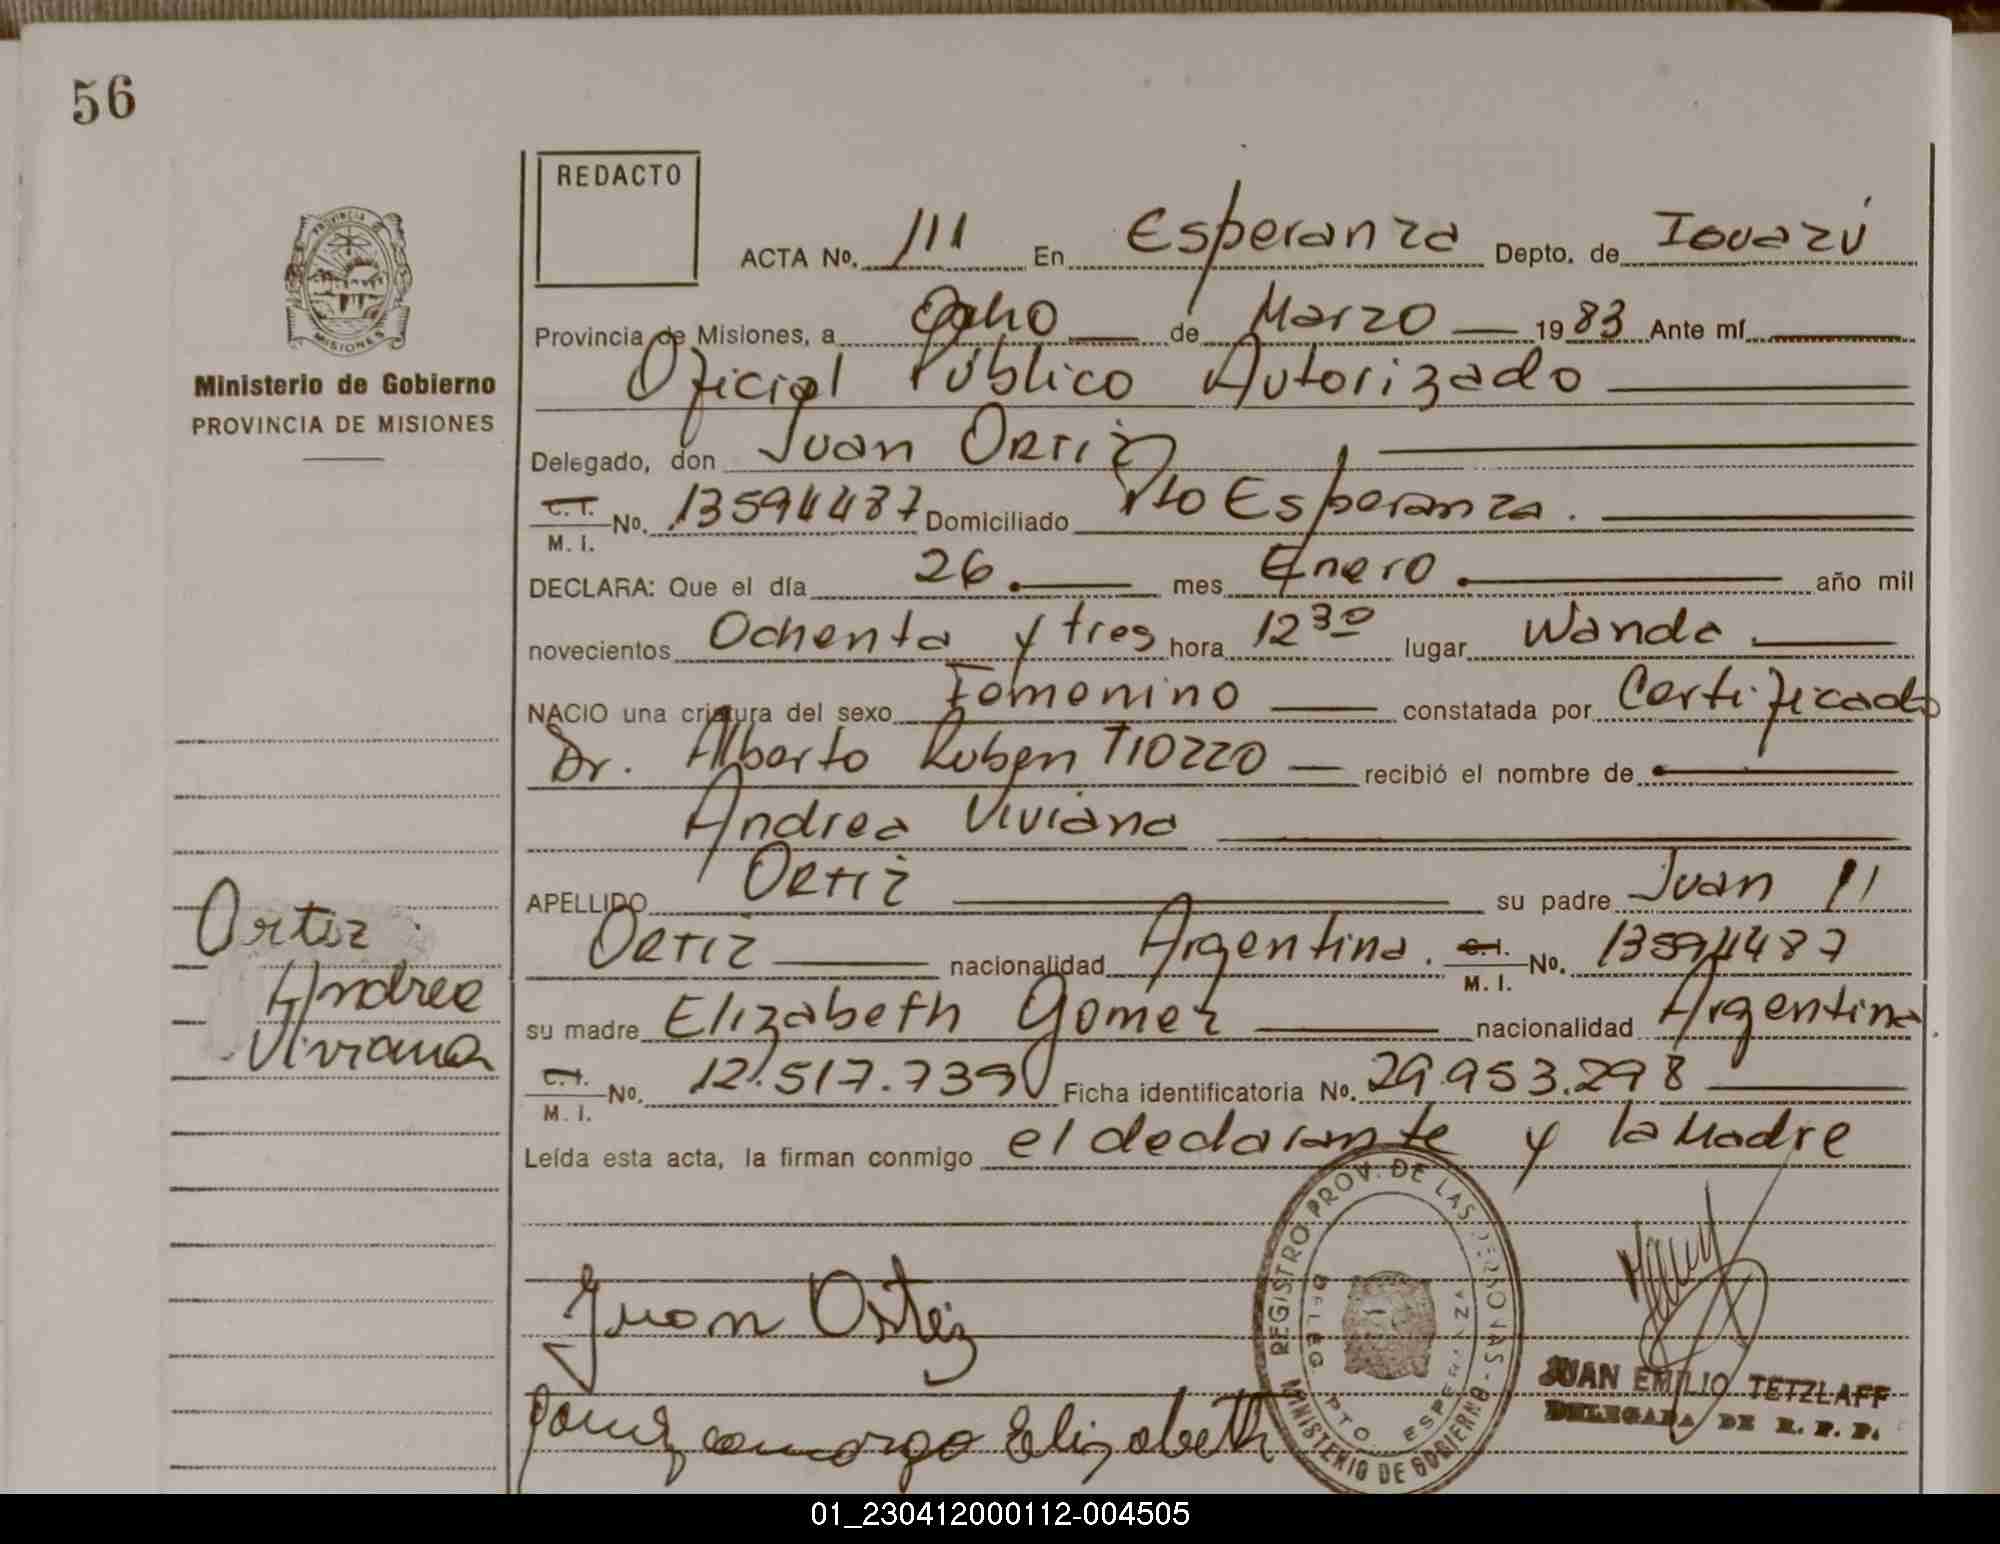 56
REDACTO
ACTA No. 111 En Esperanza Depto. de Iguazú
Provincia de Misiones, a Ocho de Marzo 1983 Ante mí
Oficial Público Autorizado
PROVINCIA
MISIONES
Ministerio de Gobierno
PROVINCIA DE MISIONES
Delegado, don Juan Ortiz
C.I. M. I. No. 13594487 Domiciliado Pto Esperanza.
DECLARA: Que el día 26 mes Enero año mil
novecientos Ochenta y tres hora 12 30 lugar Wanda
NACIO una criatura del sexo Femenino constatada por Certificado
Dr. Alberto Ruben TIOZZO recibió el nombre de
Andrea Viviana
APELLIDO Ortiz su padre Juan
Ortiz nacionalidad Argentina. C.I. M. I. No. 13594487
su madre Elizabeth Gomez nacionalidad Argentina.
C.I. M. I. No. 12.517.739 Ficha identificatoria No. 29.953.298
Leída esta acta, la firman conmigo el declarante y la Madre
Ortiz
Andrea
Viviana
Juan Ortiz
Gomez camargo Elizabeth
REGISTRO PROV. DE LAS PERSONAS - MINISTERIO DE GOBIERNO
DELEG. PTO ESPERANZA
JUAN EMILIO TETZLAFF
DELEGADA DE R. P. P.
01_230412000112-004505